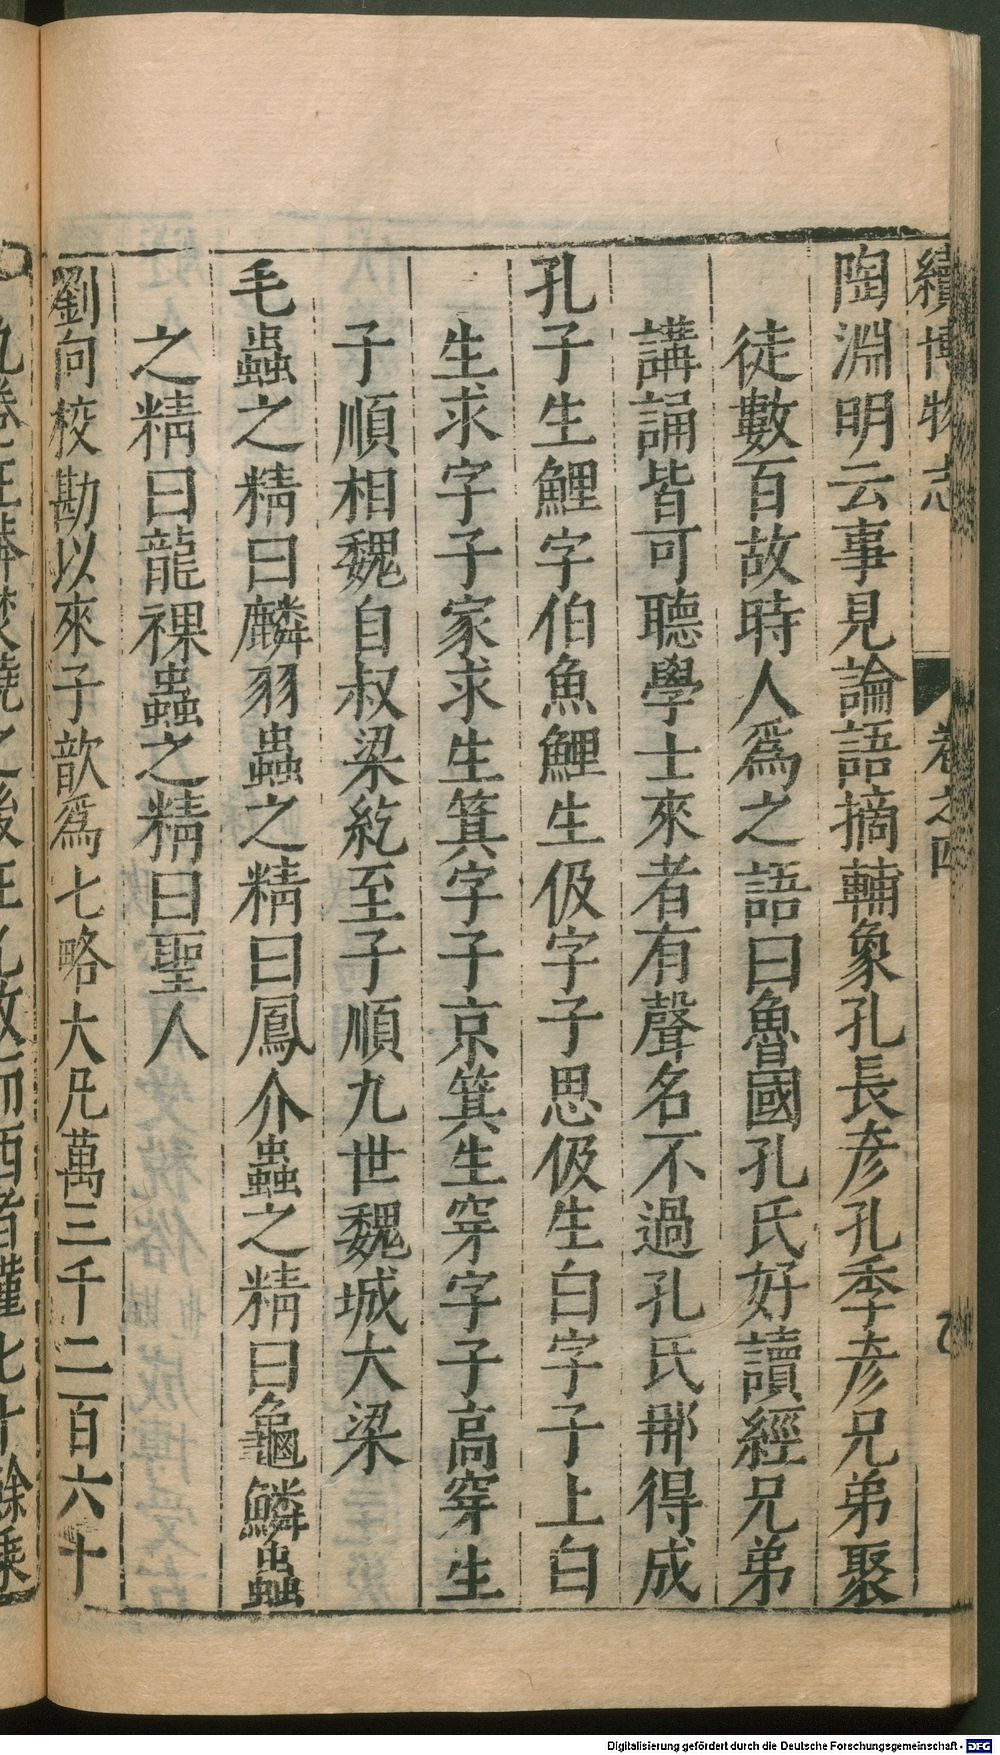 續博物志 卷之四
陶淵明云事見論語摘輔象孔長彥孔季彥兄弟聚
徒數百故時人爲之語曰魯國孔氏好讀經兄弟
講誦皆可聽學士來者有聲名不過孔氏那得成
孔子生鯉字伯魚鯉生伋字子思伋生白字子上白
生求字子家求生箕字子京箕生穿字子高穿生
子順相魏自叔梁紇至子順九世魏城大梁
毛蟲之精曰麟羽蟲之精曰鳳介蟲之精曰龜鱗蟲
之精曰龍裸蟲之精曰聖人
劉向校勘以來子歆爲七略大凡萬三千二百六十
九卷王莽焚燒之後
Digitalisierung gefördert durch die Deutsche Forschungsgemeinschaft - DFG